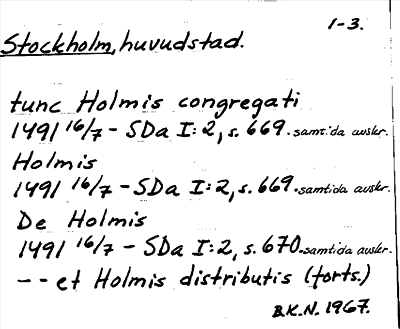 1-3.
Stockholm, huvudstad.
tunc Holmis congregati
1491 16/7 - SDa I:2, s. 669. samtida avskr.
Holmis
1491 16/7 - SDa I:2, s. 669. samtida avskr.
De Holmis
1491 16/7 - SDa I:2, s. 670. samtida avskr.
-- et Holmis distributis (forts.)
B.K.N. 1967.